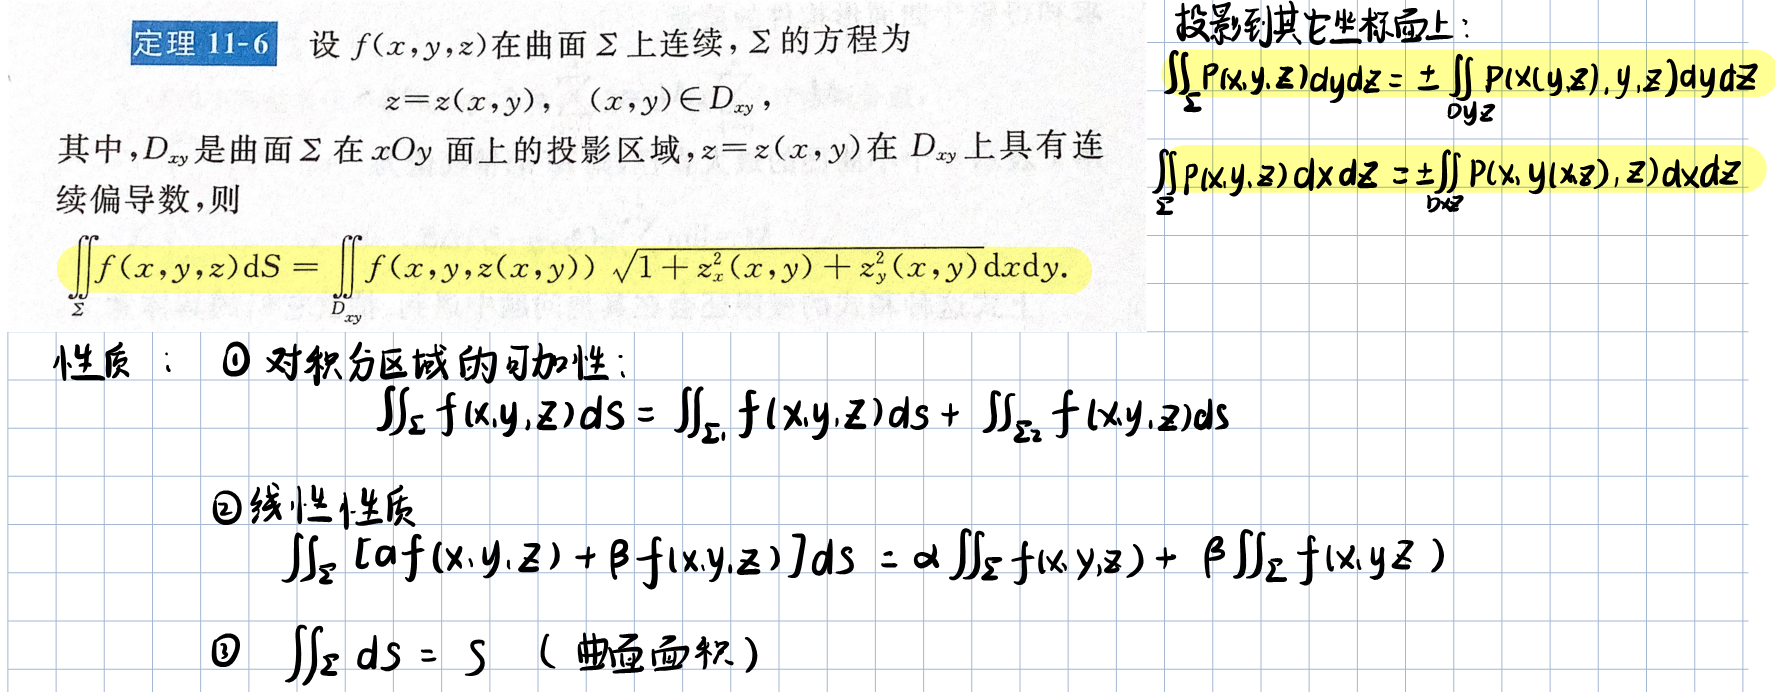 定理 11-6 设 f(x,y,z)在曲面 Σ 上连续，Σ 的方程为
z=z(x,y)， (x,y)∈D_{xy}，
其中，D_{xy}是曲面 Σ 在 xOy 面上的投影区域，z=z(x,y)在 D_{xy}上具有连
续偏导数，则
∬_Σ f(x,y,z)dS = ∬_{D_{xy}} f(x,y,z(x,y)) √(1+z_x^2(x,y)+z_y^2(x,y))dxdy.
投影到其它坐标面上：
∬_Σ P(x,y,z)dydz = ± ∬_{Dyz} P(x(y,z),y,z)dydz
∬_Σ P(x,y,z)dxdz = ± ∬_{Dxz} P(x,y(x,z),z)dxdz
性质： ① 对积分区域的可加性：
∬_Σ f(x,y,z)ds = ∬_{Σ1} f(x,y,z)ds + ∬_{Σ2} f(x,y,z)ds
② 线性性质
∬_Σ [αf(x,y,z) + βf(x,y,z)]ds = α∬_Σ f(x,y,z) + β∬_Σ f(x,yz)
③ ∬_Σ ds = S （曲面面积）